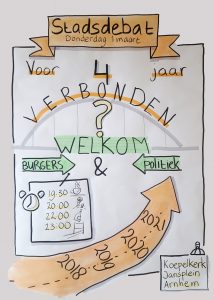 Stadsdebat
Donderdag 1 maart
Voor 4 jaar
VERBONDEN
?
WELKOM
BURGERS & POLITIEK
19:30
20:00
22:00
23:00
2018 2019 2020 2021
Koepelkerk
Jansplein
Arnhem